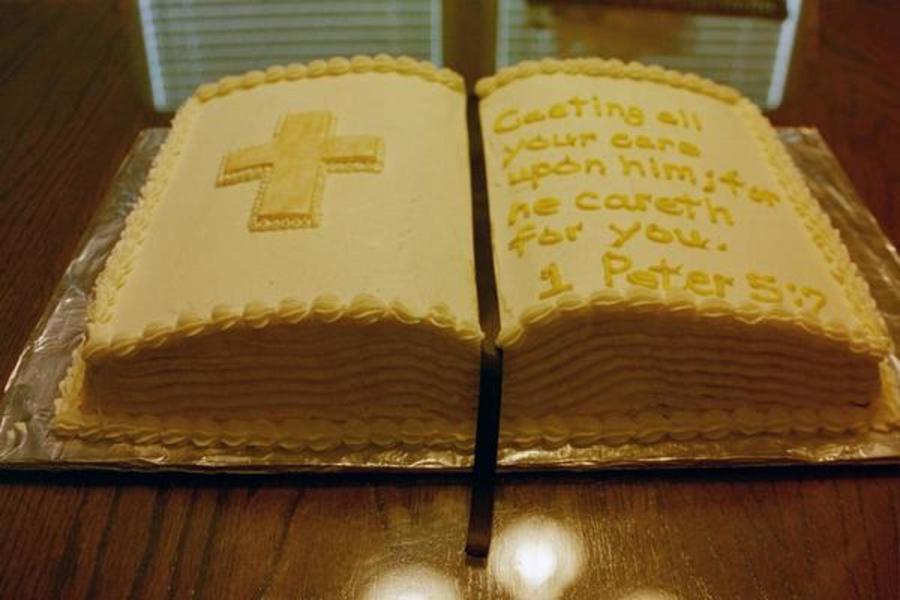 Casting all
your care
upon him; for
he careth
for you.
1 Peter 5:7